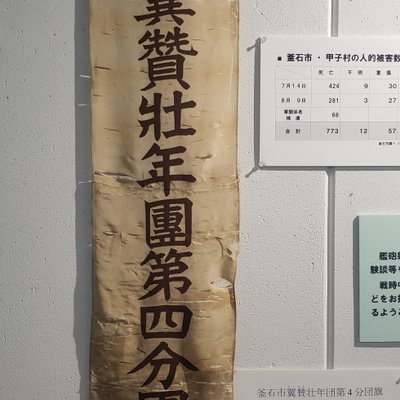 翼贊壯年團第四分團
■ 釜石市・甲子村の人的被害数
死亡 不明 重傷
7月14日 424 9 30
8月 9日 281 3 27
68
合計 773 12 57
艦砲
験談等
戦時中
どをお
るよう
釜石市翼賛壮年団第4分団旗